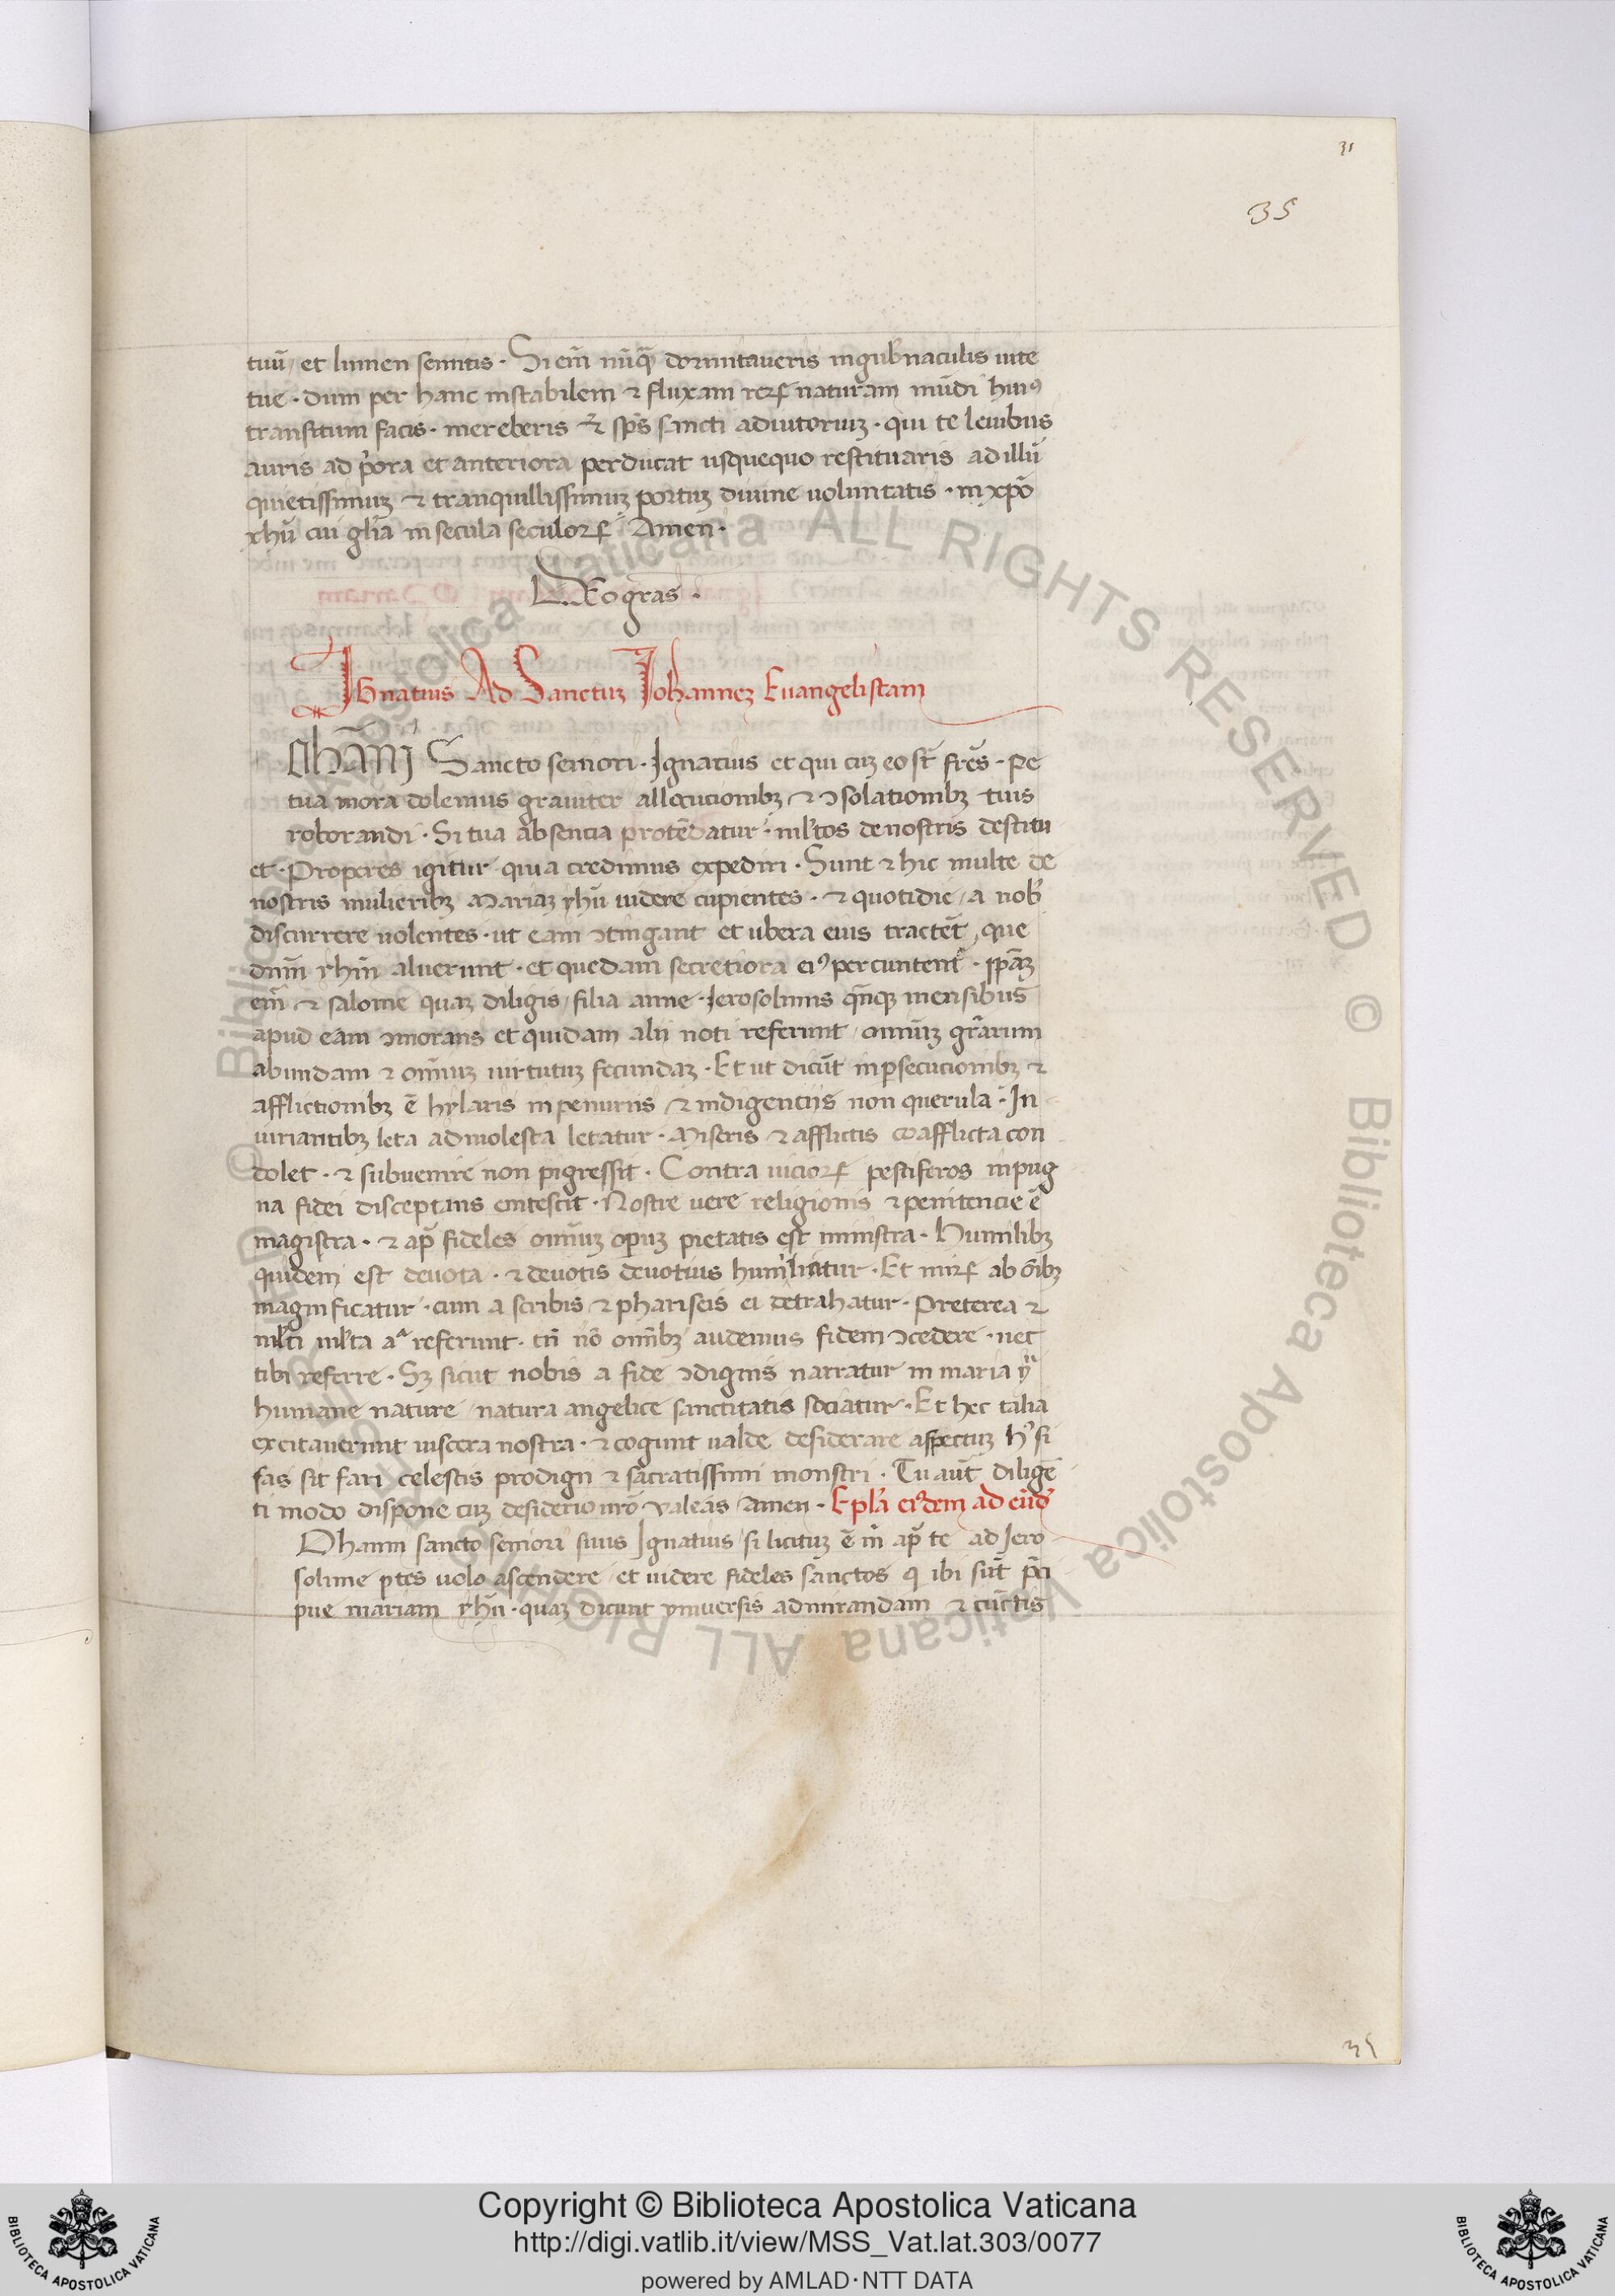 31
35
tuū et lumen semitis · Si em̄ nūq̄ dormitaveris in gub'naculis vite
tue · dum per hanc instabilem ⁊ fluxam reꝝ naturam mūdi huiꝰ
transitum facis · mereberis ⁊ sp̄s sancti adiutoriuꝫ · qui te levibus
auris ad p̄ora et anteriora perducat usquequo restituaris ad illū
quietissimuꝫ ⁊ tranquillissimuꝫ portuꝫ divine voluntatis · in xp̄o
yhū cui gl̄ia in secula seculoꝝ Amen ·
DEo gr̄as ·
Ignatius Ad Sanctuꝫ Iohanneꝫ Evangelistam
Ohāni Sancto seniori · Ignatius et qui cuꝫ eo st̄ fr̄es · De
tua mora dolemus graviter allocucionibꝫ ⁊ ↄsolationibꝫ tuis
roborandi · Si tua absencia protēdatur · ml'tos de nostris destitu
et · Properes igitur quia credimus expediri · Sunt ⁊ hic multe de
nostris mulieribꝫ Mariaꝫ yhū videre cupientes · ⁊ quotidie a nob'
discurrere volentes · ut eam ↄtingant et ubera eius tractēt, que
dn̄m yhm̄ aluerunt · et quedam secretiora eiꝰ percuntent' · ip̄aꝫ
em̄ ⁊ salome quaꝫ diligis filia anne · Ierosolimis qn̄qꝫ mensibus
apud eam ↄmorans et quidam alii noti referunt omniuꝫ gr̄arum
abundam ⁊ om̄iuꝫ virtutuꝫ fecundaꝫ · Et ut dicūt in p̱secucionibꝫ ⁊
afflictionibꝫ ē hylaris in penuriis ⁊ indigenciis non querula · In
iuriantibꝫ leta ad molesta letatur · Miseris ⁊ afflictis coafflicta con
dolet · ⁊ subvenire non pigressit · Contra vicioꝝ pestiferos in pug
na fidei disceptans enitescit · Nostre vere religionis ⁊ penitencie ē
magistra · ⁊ ap̄ fideles om̄iuꝫ opuꝫ pietatis est ministra · Humilibꝫ
quidem est devota · ⁊ devotis devotius humiliatur · Et mirꝝ ab oībꝫ
magnificatur · cum a scribis ⁊ phariseis ei detrahatur · Preterea ⁊
ml'ti ml'ta aͣ referunt · tn̄ nō omībꝫ audemus fidem ↄcedere · nec
tibi referre · Sꝫ sicut nobis a fide ↄdignis narratur in maria yͧ
humane nature natura angelice sanctitatis sociatur · Et hec talia
excitaverunt viscera nostra · ⁊ cogunt valde desiderare aspectuꝫ hꝰ si
fas sit fari celestis prodigii ⁊ sacratissimi monstri · Tu aūt diligē
ti modo dispone cuꝫ desiderio nr̄o valeas Amen · Epl'a eiꝰdem ad eūd'
Ohanni sancto seniori suus Ignatius si licituꝫ ē m̄ ap̄ te ad Iero
solime p̱tes volo ascendere et videre fideles sanctos q ibi sūt p̄ci
pue mariam yhū · quaꝫ dicunt universis admirandam ⁊ cūctis
35
© Biblioteca Apostolica Vaticana ALL RIGHTS RESERVED © Biblioteca Apostolica Vaticana ALL RIGHTS RESERVED
BIBLIOTECA APOSTOLICA VATICANA
Copyright © Biblioteca Apostolica Vaticana
http://digi.vatlib.it/view/MSS_Vat.lat.303/0077
powered by AMLAD·NTT DATA
BIBLIOTECA APOSTOLICA VATICANA